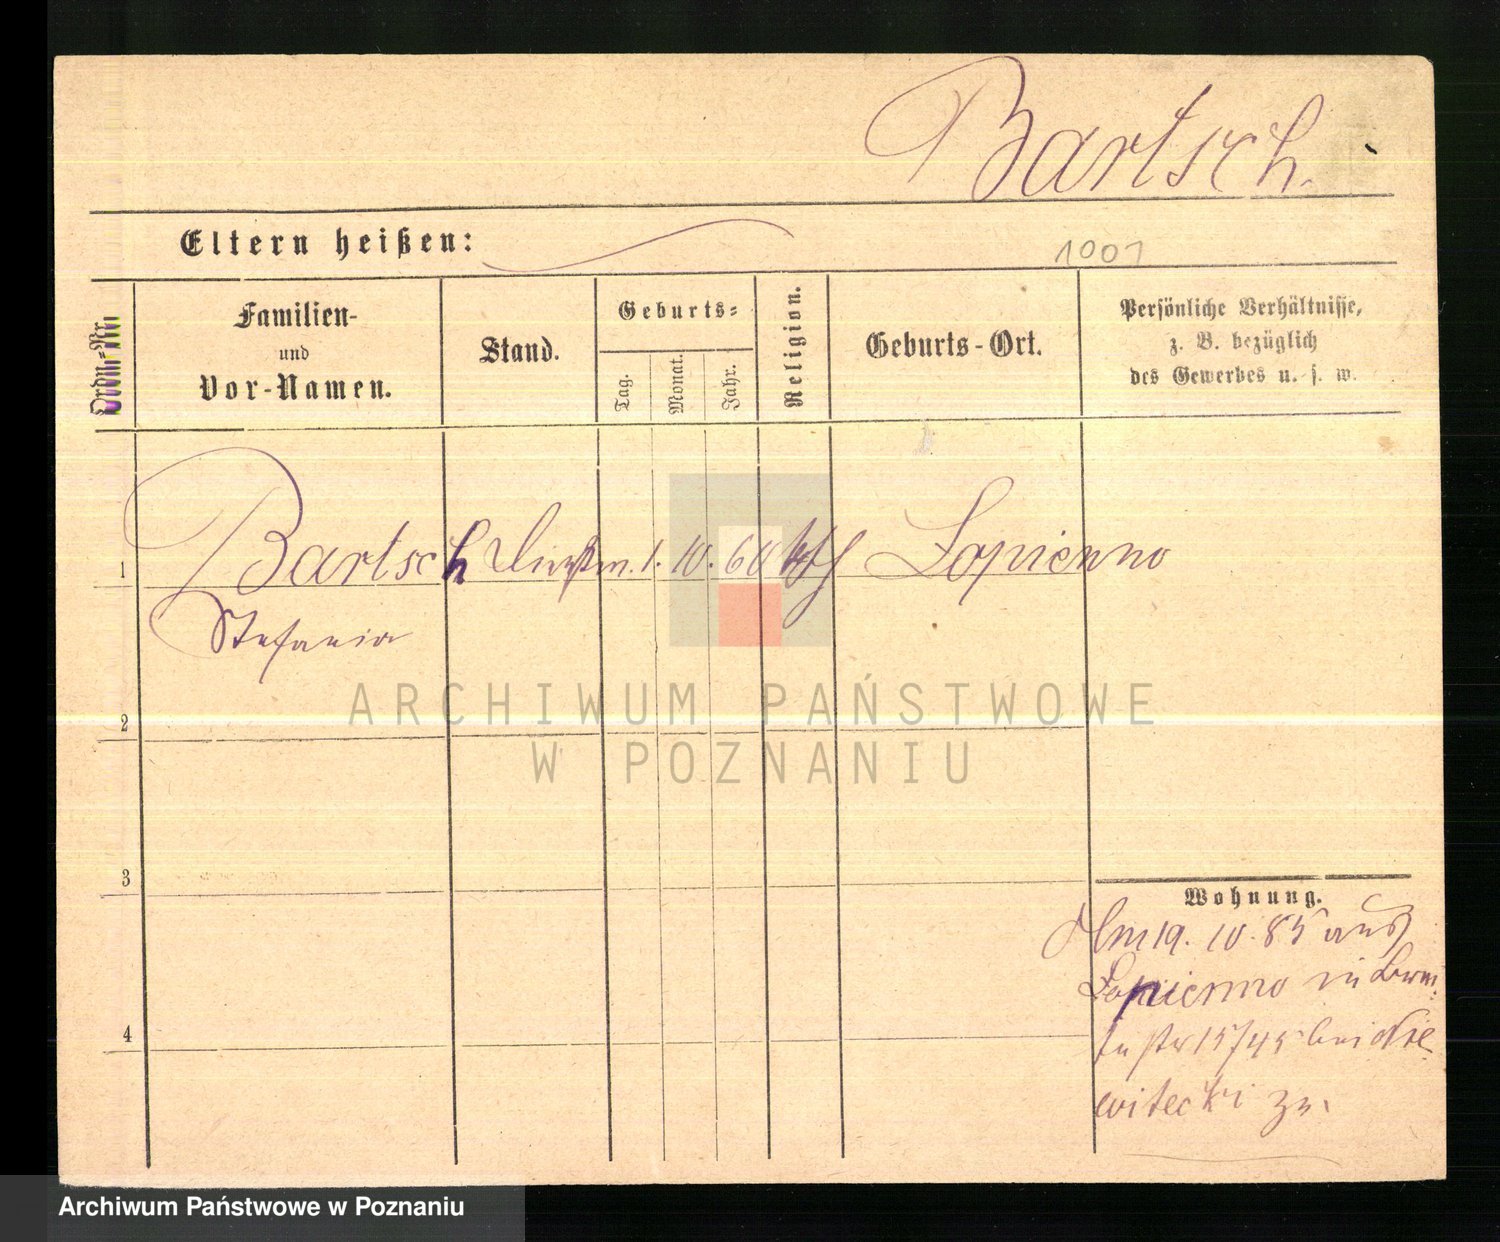 Bartsch.
Eltern heißen:
1001
Ordn.-Nr.
Familien-
und
Vor-Namen.
Stand.
Geburts-
Tag.
Monat.
Jahr.
Religion.
Geburts-Ort.
Persönliche Verhältnisse,
z. B. bezüglich
des Gewerbes u. s. w.
1 Bartsch Dienstm. 1. 10. 60 kth Lopienno
Stefania
2
3
4
Wohnung.
Am 19. 10. 85 aus
Lopienno in
str 15/45 bei Nie
witecki zu.
ARCHIWUM PAŃSTWOWE
W POZNANIU
Archiwum Państwowe w Poznaniu